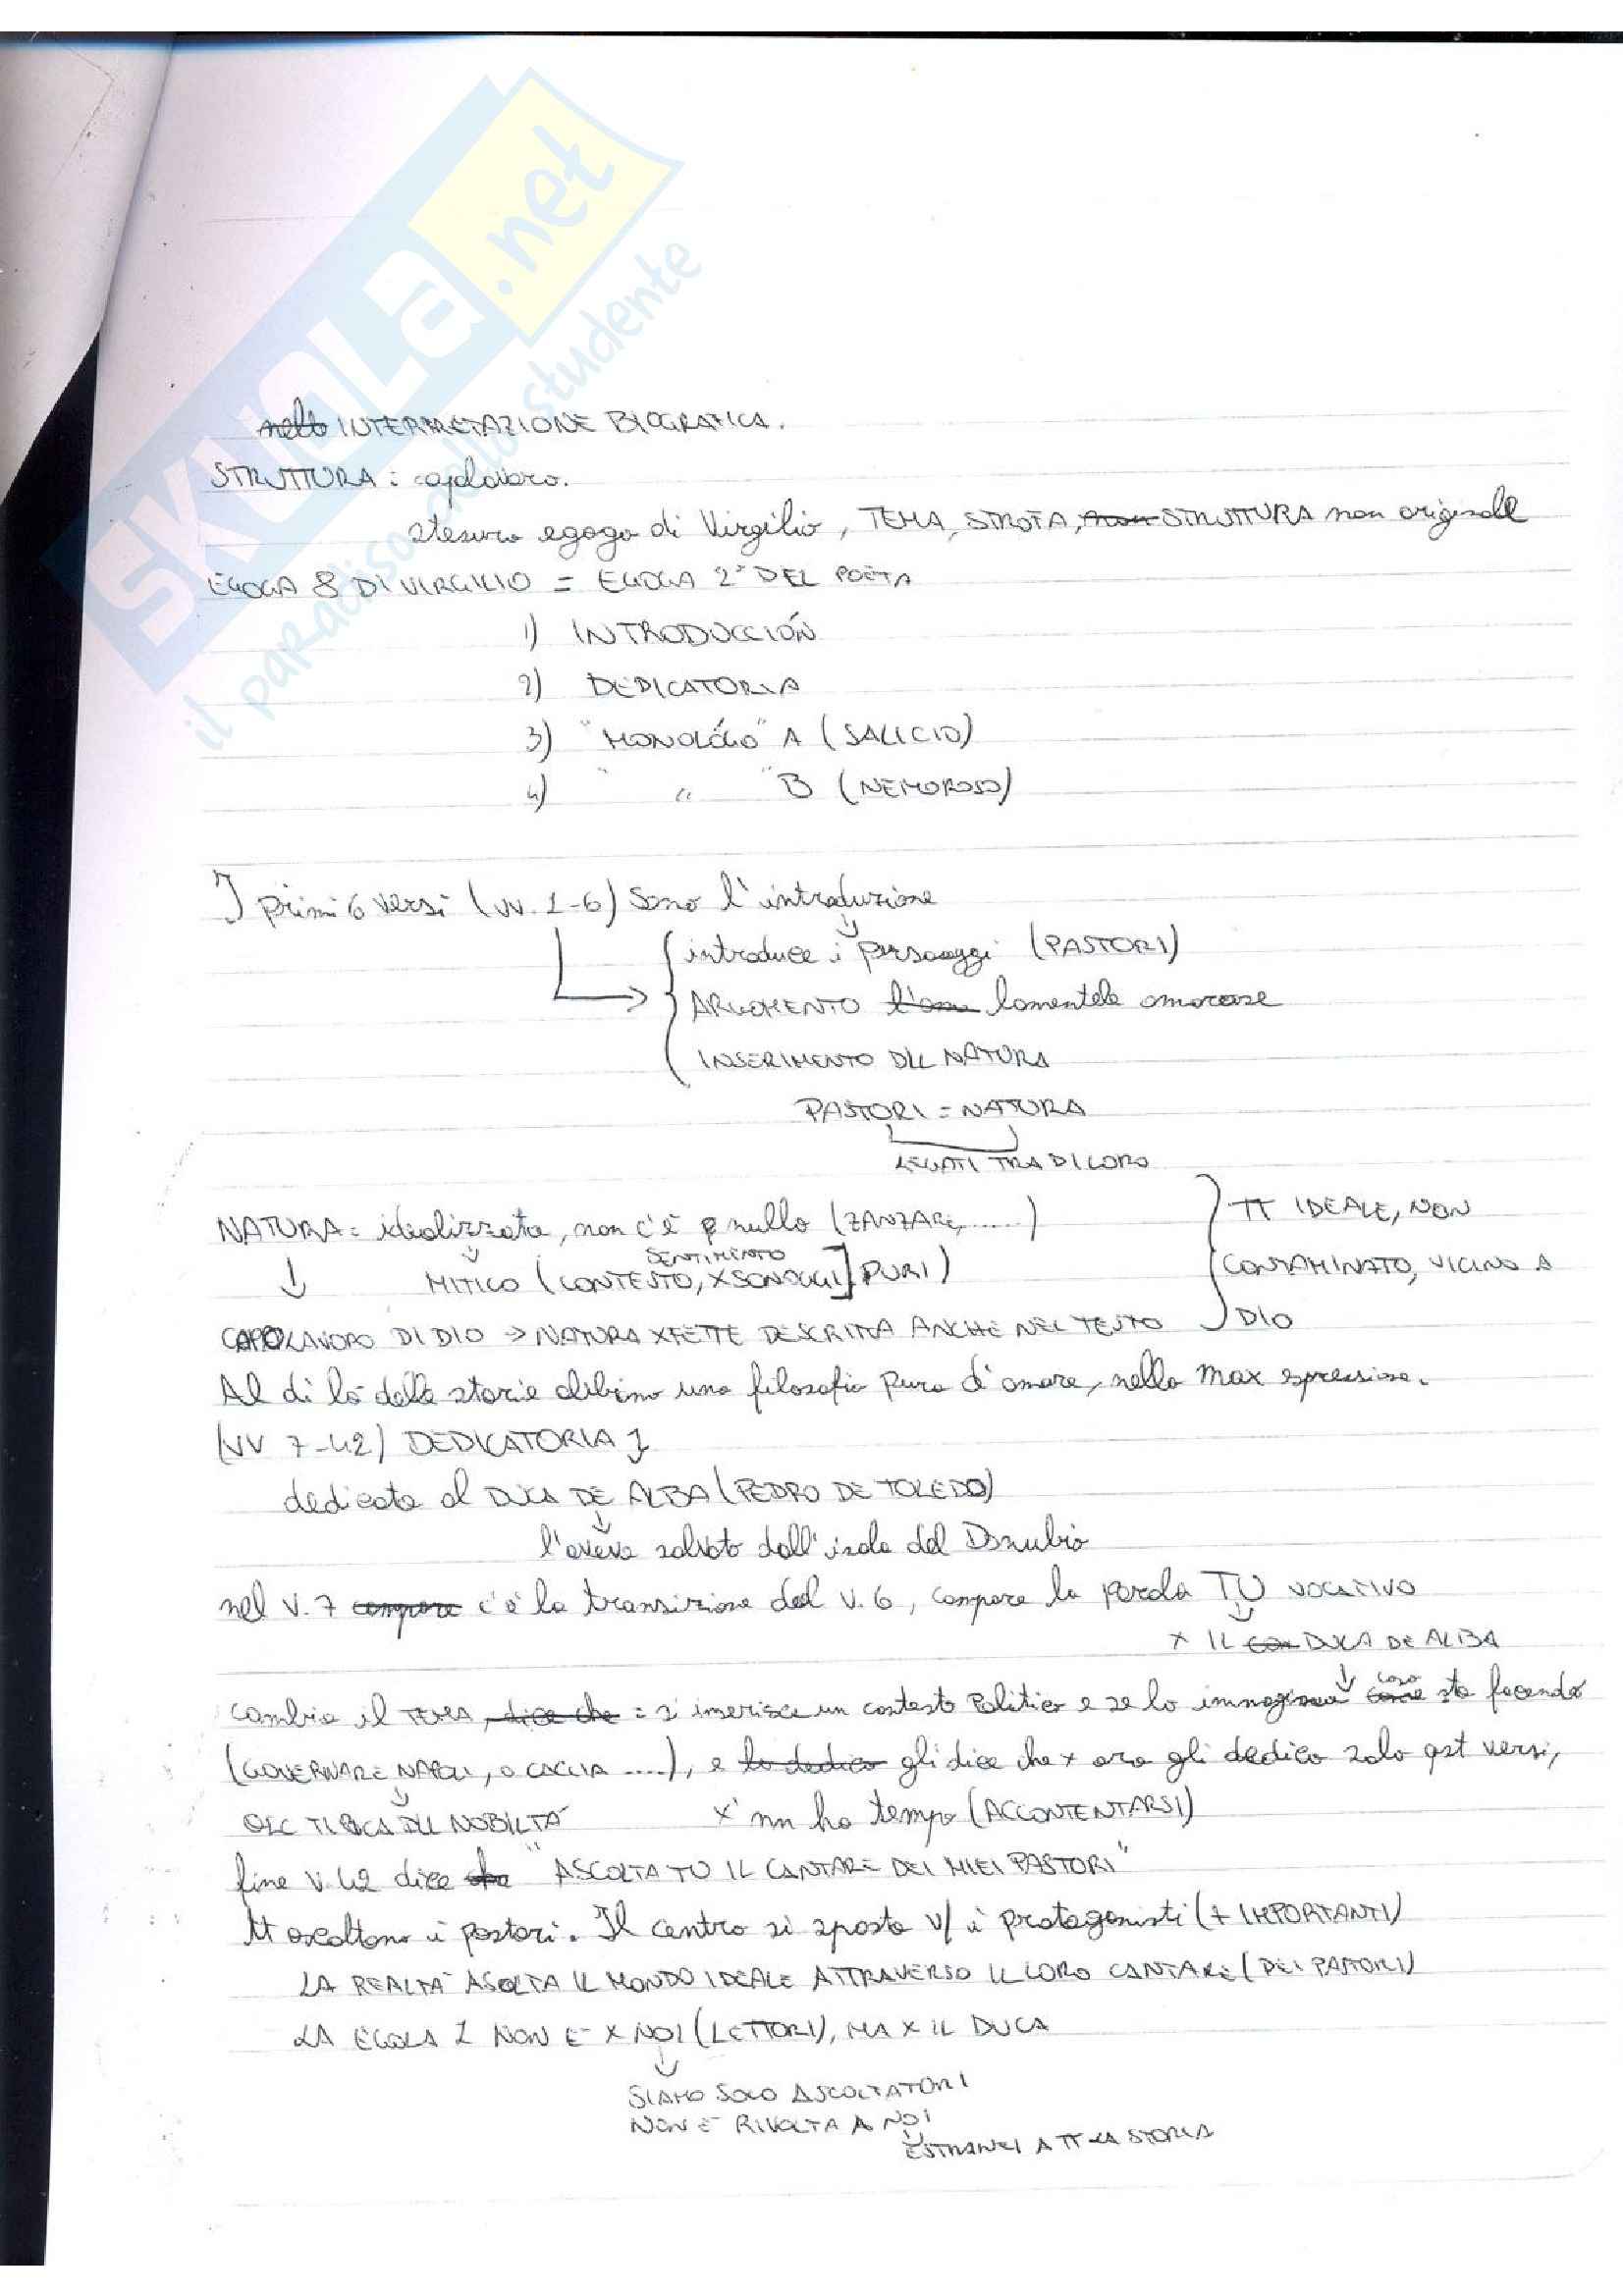 SKUOLA.net
il paradiso dello studente
nello INTERPRETAZIONE BIOGRAFICA.
STRUTTURA : capolavoro.
stesura egoga di Virgilio, TEMA, STROFA, non STRUTTURA non originale
EGOGA 8 DI VIRGILIO = EGOGA 2ª DEL POETA
1) INTRODUCCIÓN
2) DEDICATORIA
3) "MONOLÓGO" A (SALICIO)
4) " " " B (NEMOROSO)
I primi 6 versi (vv. 1-6) sono l'introduzione
introduce i personaggi (PASTORI)
ARGOMENTO lamentele amorose
INSERIMENTO DLL NATURA
PASTORI = NATURA
LEGATI TRA DI LORO
NATURA = idealizzata, non c'è nulla (ZANZARE, .....) } TT IDEALE, NON
SENTIMENTO
↓ MITICO (CONTESTO, XSONAGGI] PURI) CONTAMINATO, VICINO A
CAPOLAVORO DI DIO → NATURA XFETTE DESCRITTA ANCHE NEL TESTO DIO
Al di là delle storie abbiamo una filosofia pura d'amore, nella max espressione.
(VV 7-42) DEDICATORIA ↓
dedicata al DUCA DE ALBA (PEDRO DE TOLEDO)
l'aveva salvato dall'isola del Danubio
nel v. 7 compare c'è la transizione dal v. 6, compare la parola TU VOCATIVO
X IL DUCA DE ALBA
cambia il TEMA, dice che : si inserisce un contesto Politico e se lo immagina cosa sta facendo
(GOVERNARE NAPOLI, O CACCIA ....), e lo dedica gli dice che x ora gli dedica solo qst versi,
TIPICA DLL NOBILTÀ x' nn ha tempo (ACCONTENTARSI)
fine v. 42 dice che "ASCOLTA TU IL CANTARE DEI MIEI PASTORI"
tt ascoltano i pastori. Il centro si sposta v/ i protagonisti (+ IMPORTANTI)
LA REALTÀ ASCOLTA IL MONDO IDEALE ATTRAVERSO IL LORO CANTARE (DEI PASTORI)
LA EGOGA 1 NON È X NOI (LETTORI), MA X IL DUCA
SIAMO SOLO ASCOLTATORI
NON È RIVOLTA A NOI
ESTRANEI A TT LA STORIA